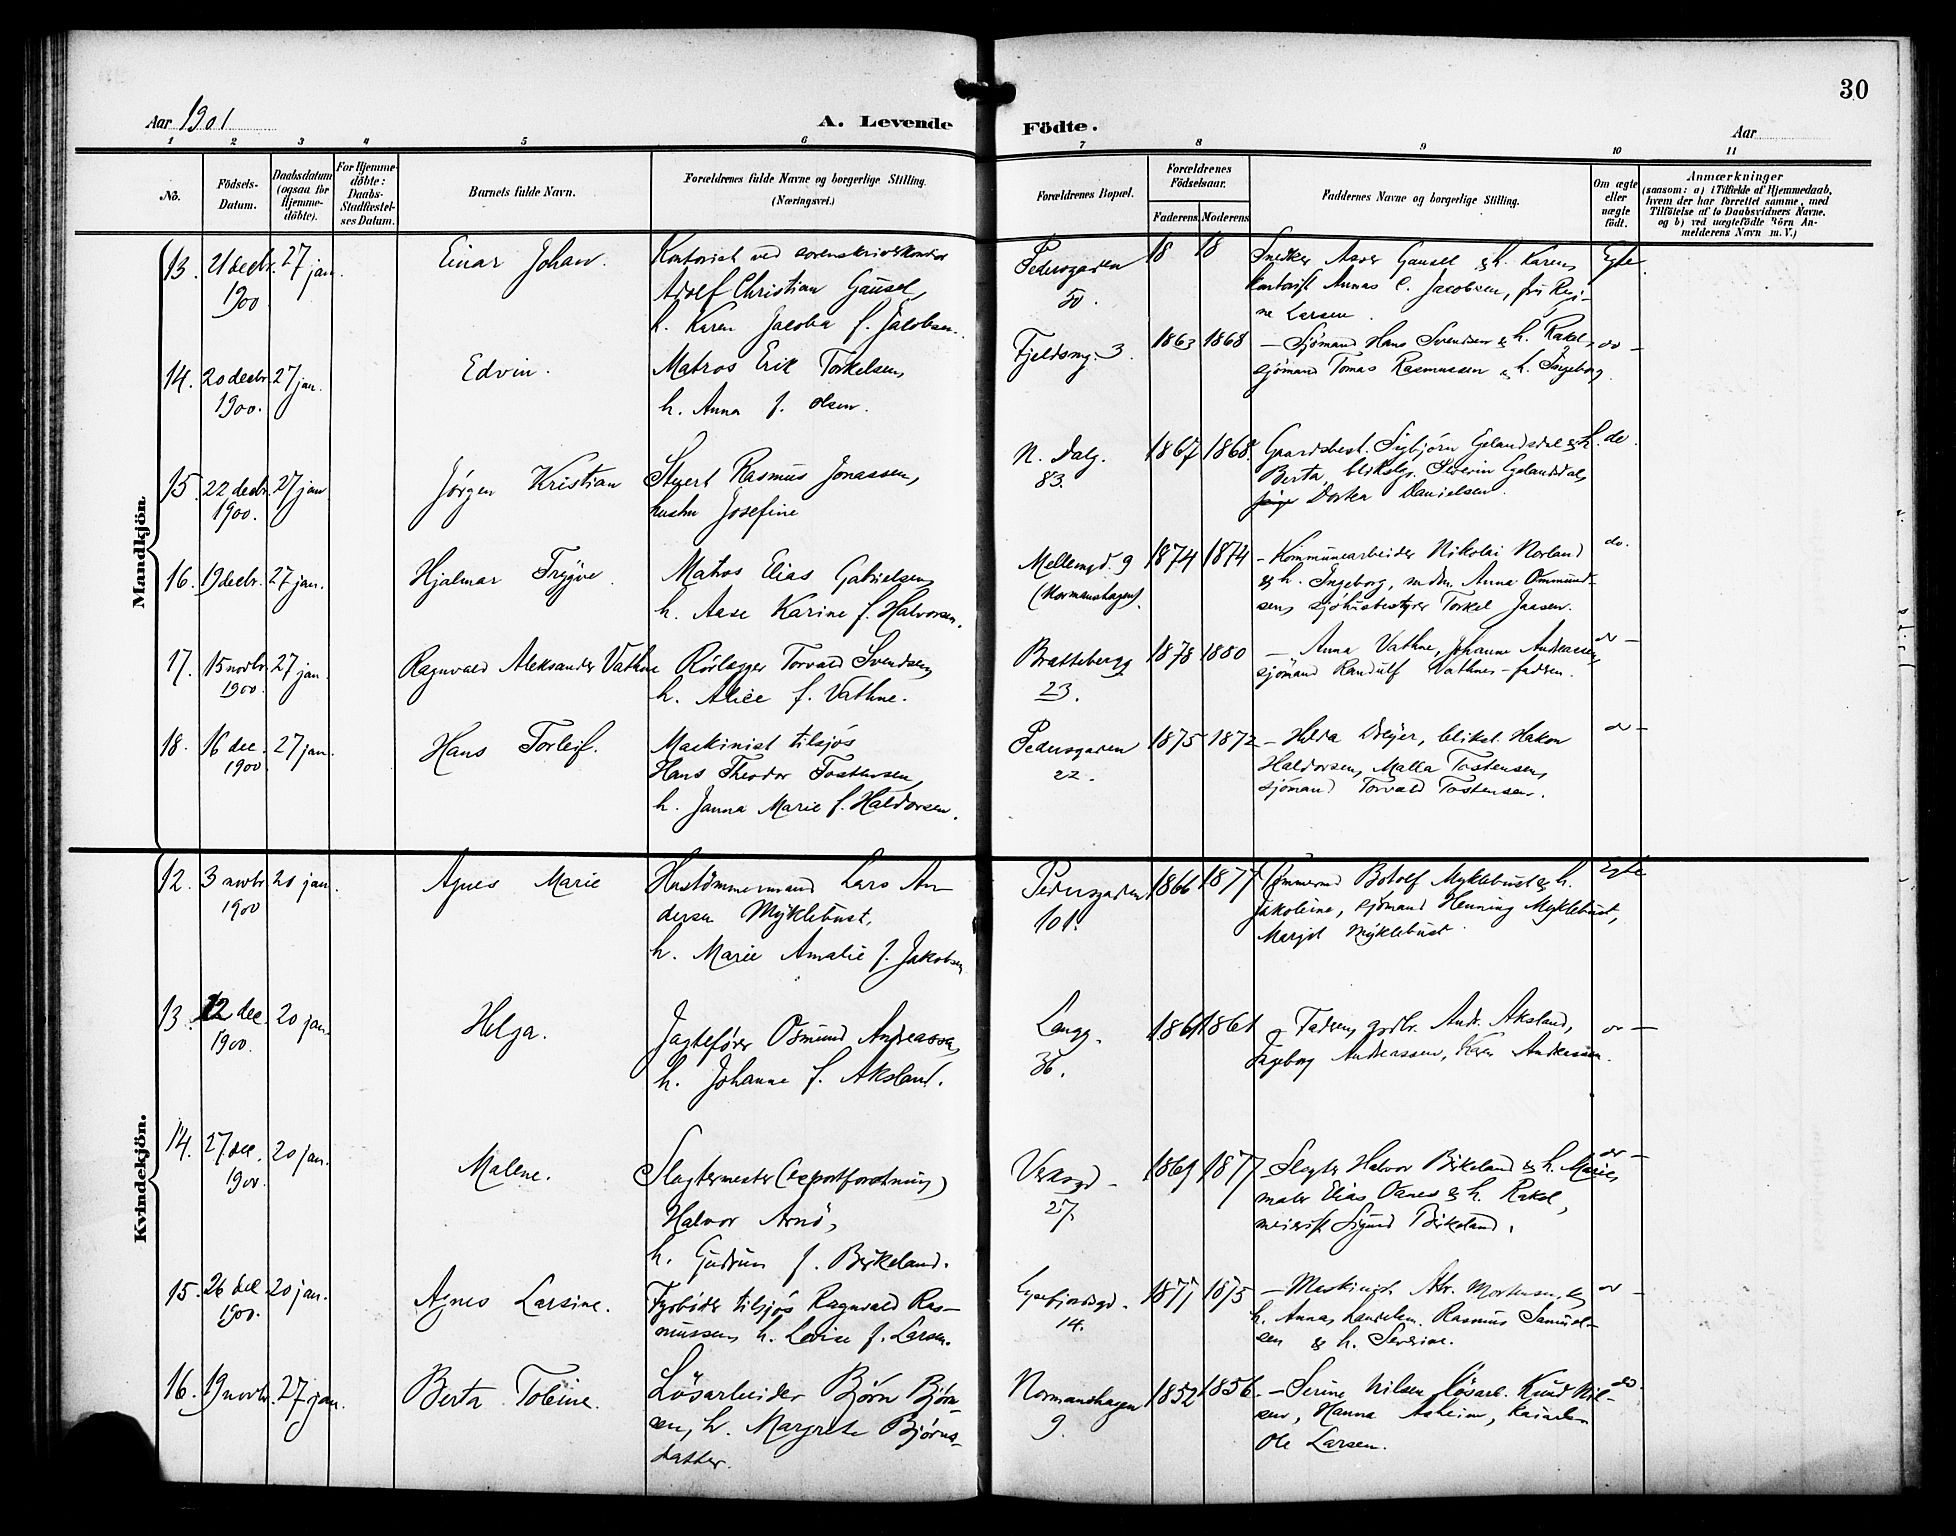 30
Aar 1901
A. Levende
Födte.
Aar
1 2 3 4 5 6 7 8 9 10 11
No.
Födsels-
Datum.
Daabsdatum
(ogsaa for
Hjemme-
döbte).
For Hjemme-
döbte:
Daabs-
Stadfæstel-
ses Datum.
Barnets fulde Navn.
Forældrenes fulde Navne og borgerlige Stilling.
(Næringsvei.)
Forældrenes Bopæl.
Forældrenes
Födselsaar.
Faderens Moderens
Faddernes Navne og borgerlige Stilling.
Om ægte
eller
uægte
födt.
Anmærkninger
(saasom: a) i Tilfælde af Hjemmedaab,
hvem der har forrettet samme, med
Tilföielse af to Daabsvidners Navne,
og b) ved uægtefödte Börn An-
melderens Navn m. V.)
Mandkjön
13. 21 decbr. 27 jan.
1900
Einar Johan.
Kontorist ved sorenskriverkontor
Adolf Christian Gausel,
h. Karen Jacoba f. Jacobsen.
Pedersgaden
50.
18 18
Snedker Asser Gausel & h. Karen,
kontorist Annas C. Jacobsen, frk Regi-
ne Larsen.
Egte.
14. 20 decbr. 27 jan.
1900.
Edvin.
Matros Erik Torkelsen,
h. Anna f. Olsen.
Fjeldsmg. 3.
1863 1868
– Sjömand Hans Svendsen & h. Rakel,
sjömand Tomas Rasmussen & h. Ingeborg.
do –
15. 22 decbr. 27 jan
1900.
Jørgen Kristian
Stuert Rasmus Jonassen,
hustru Josefine
N. Dalg.
83.
1867 1868.
Gaardsbest. Sigbjörn Egelandsdal & h.
Berta, blikslgr. Severin Egelandsdal,
Dortea Danielsen.
do.
16. 19 decbr. 27 jan.
Hjalmar Trygve.
Matros Elias Gabrielsen,
h. Aase Karine f. Halvorsen.
Mellemgd. 9
(Normanshagen).
1874 1874
– Kommunearbeider Nikolai Norland
& h. Ingeborg, mdm. Anna Ommund-
sen, sjöhusbestyrer Torkel Jaasen.
do.
17. 15 novbr. 27 jan.
1900.
Ragnvald Aleksander Vathne
Rörlægger Torvald Svendsen,
h. Alice f. Vathne.
Brattebergg
23.
1878 1880
– Anna Vathne, Johanne Andreassen,
sjömand Randulf Vathne – fadren.
do –
18. 16 dec. 27 jan.
1900
Hans Torleif.
Maskinist tilsjös
Hans Theodor Tostensen,
h. Janna Marie f. Haldorsen.
Pedersgaden
22.
1875 1872
– Hilda Dreyer, blikst. Hakon
Haldorsen, Malla Tostensen,
sjömand Torvald Tostensen.
do –
Kvindekjön.
12. 3 novbr. 20 jan.
1900
Agnes Marie
Hustömmermand Lars An-
dersen Myklebust,
h. Marie Amalie f. Jakobsen
Pedersgaden
101.
1866 1877
Tömmermd Botolf Myklebust & h.
Jakobine, sjömand Henning Myklebust,
Margit Myklebust.
Egte
13. 12 dec. 20 jan.
1900.
Helga.
Jagtefører Osmund Andreassen,
h. Johanne f. Aksland.
Langg.
36.
1861 1861
– Fadren, grdbr. Andr. Aksland,
Ingeborg Andreassen, Karen Andreassen.
do –
14. 27 dec. 20 jan.
1900.
Malene.
Slagtermester (exportforretning)
Halvor Arnö,
h. Gudrun f. Birkeland.
Verksgd –
27.
1869 1877
– Slagter Halvor Birkeland & h. Marie,
maler Elias Oanes & h. Rakel,
meierist Sigurd Birkeland.
do –
15. 26 dec 20 jan.
1900.
Agnes Larsine.
Fyrböder tilsjös Ragnvald Ras-
mussen, h. Lovise f. Larsen.
Lysefjordsgd.
14.
1877 1875
– Maskinist Abr. Mortensen, &
h. Anna, handelsm. Rasmus Samuel-
sen & h. Severine.
do –
16. 19 novbr. 27 jan.
Berta Tobine.
Lösarbeider Bjørn Bjørn-
sen, h. Margrete Bjørns-
datter.
Normanshagen
9.
1852 1856.
– Serine Nilsen, lösarb. Knud Nil-
sen, Hanna Asheim,
Ole Larsen.
do.